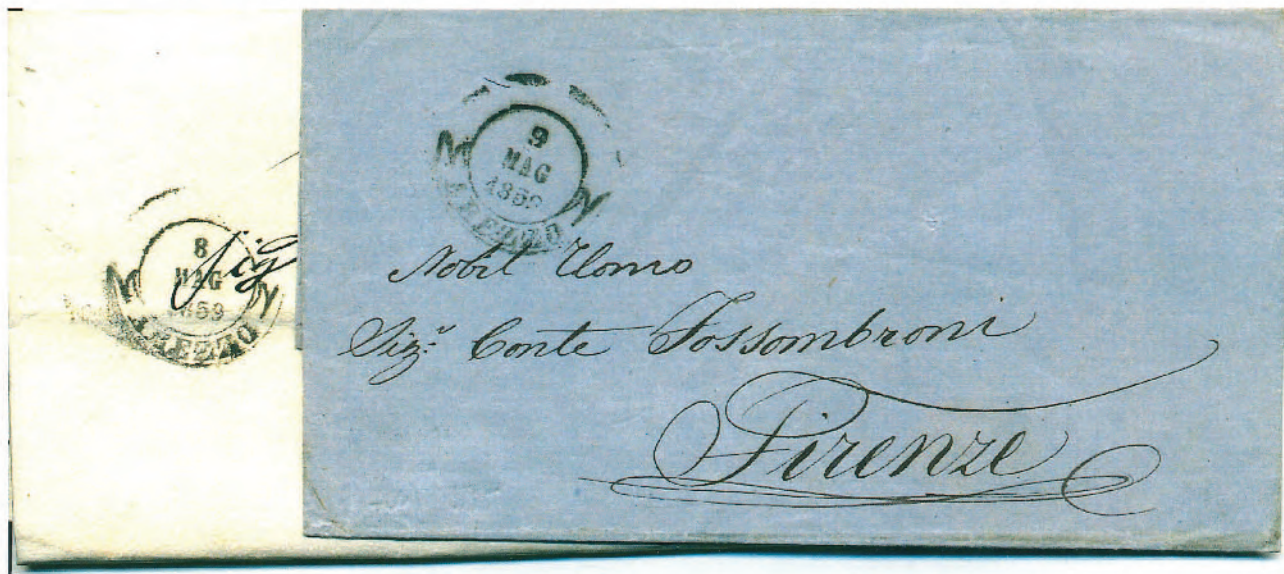 9
MAG
1859
AREZZO
8
MAG
1859
AREZZO
Sig
Nobil Uomo
Sigr. Conte Fossombroni
Firenze